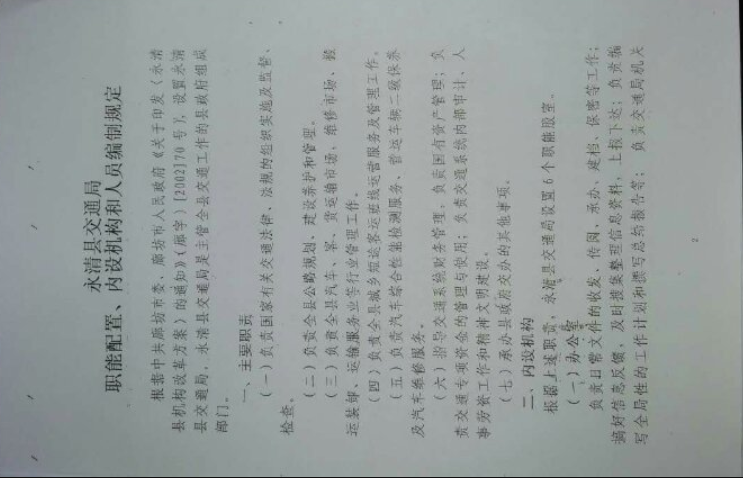 永清县交通局
职能配置、内设机构和人员编制规定
根据中共廊坊市委、廊坊市人民政府《关于印发〈永清
县机构改革方案〉的通知》(廊字)[2002]70号),设置永清
县交通局,永清县交通局是主管全县交通工作的县政府组成
部门。
一、主要职责
(一)负责国家有关交通法律、法规的组织实施及监督、
检查。
(二)负责全县公路规划、建设养护和管理。
(三)负责全县汽车、客、货运输市场,维修市场、搬
运装卸、运输服务业等行业管理工作。
(四)负责全县城乡短途客运班线运营服务及管理工作。
(五)负责汽车综合性能检测服务、营运车辆二级保养
及汽车维修服务。
(六)指导交通系统财务管理,负责国有资产管理;负
责交通专项资金的管理与使用;负责交通系统内部审计、人
事劳资工作和精神文明建设。
(七)承办县政府交办的其他事项。
二、内设机构
根据上述职责,永清县交通局设置6个职能股室。
(一)办公室
负责日常文件的收发、传阅、承办、建档、保密等工作;
搞好信息反馈,及时搜集整理信息资料,上报下达;负责编
写全局性的工作计划和撰写总结报告等;负责交通局机关
2